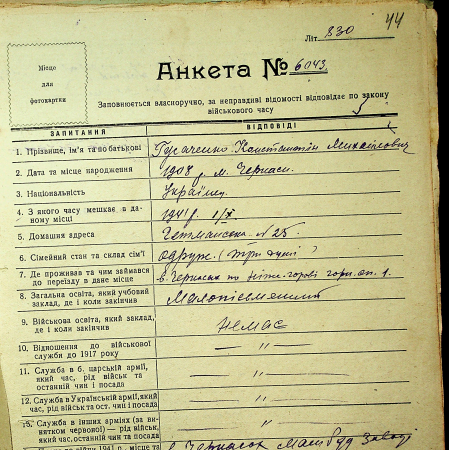 44
Літ. 830
Місце
для
фотокартки
Анкета № 6043
Заповнюється власноручно, за неправдиві відомості відповідає по закону
військового часу
ЗАПИТАННЯ ВІДПОВІДІ
1. Прізвище, ім'я та по батькові Гусаченко Константін Михайлович
2. Дата та місце народження 1908 р. м. Черкаси.
3. Національність Українец.
4. З якого часу мешкає в да-
ному місці 1941 р.
5. Домашня адреса Гетманська № 25.
6. Сімейний стан та склад сім'ї одруж. (три душі)
7. Де проживав та чим займався
до переїзду в дане місце в Черкасах по
8. Загальна освіта, який учбовий
заклад, де і коли закінчив
9. Військова освіта, який заклад,
де і коли закінчив немає
10. Відношення до військової
служби до 1917 року — " —
11. Служба в б. царській армії,
який час, рід військ та
останній чин і посада — " —
12. Служба в Українській армії, який
час, рід військ та ост. чин і посада — " —
13. Служба в інших арміях (за ви-
нятком червоної) — рід військ,
який час, останній чин та посада — " —
в Черкасах